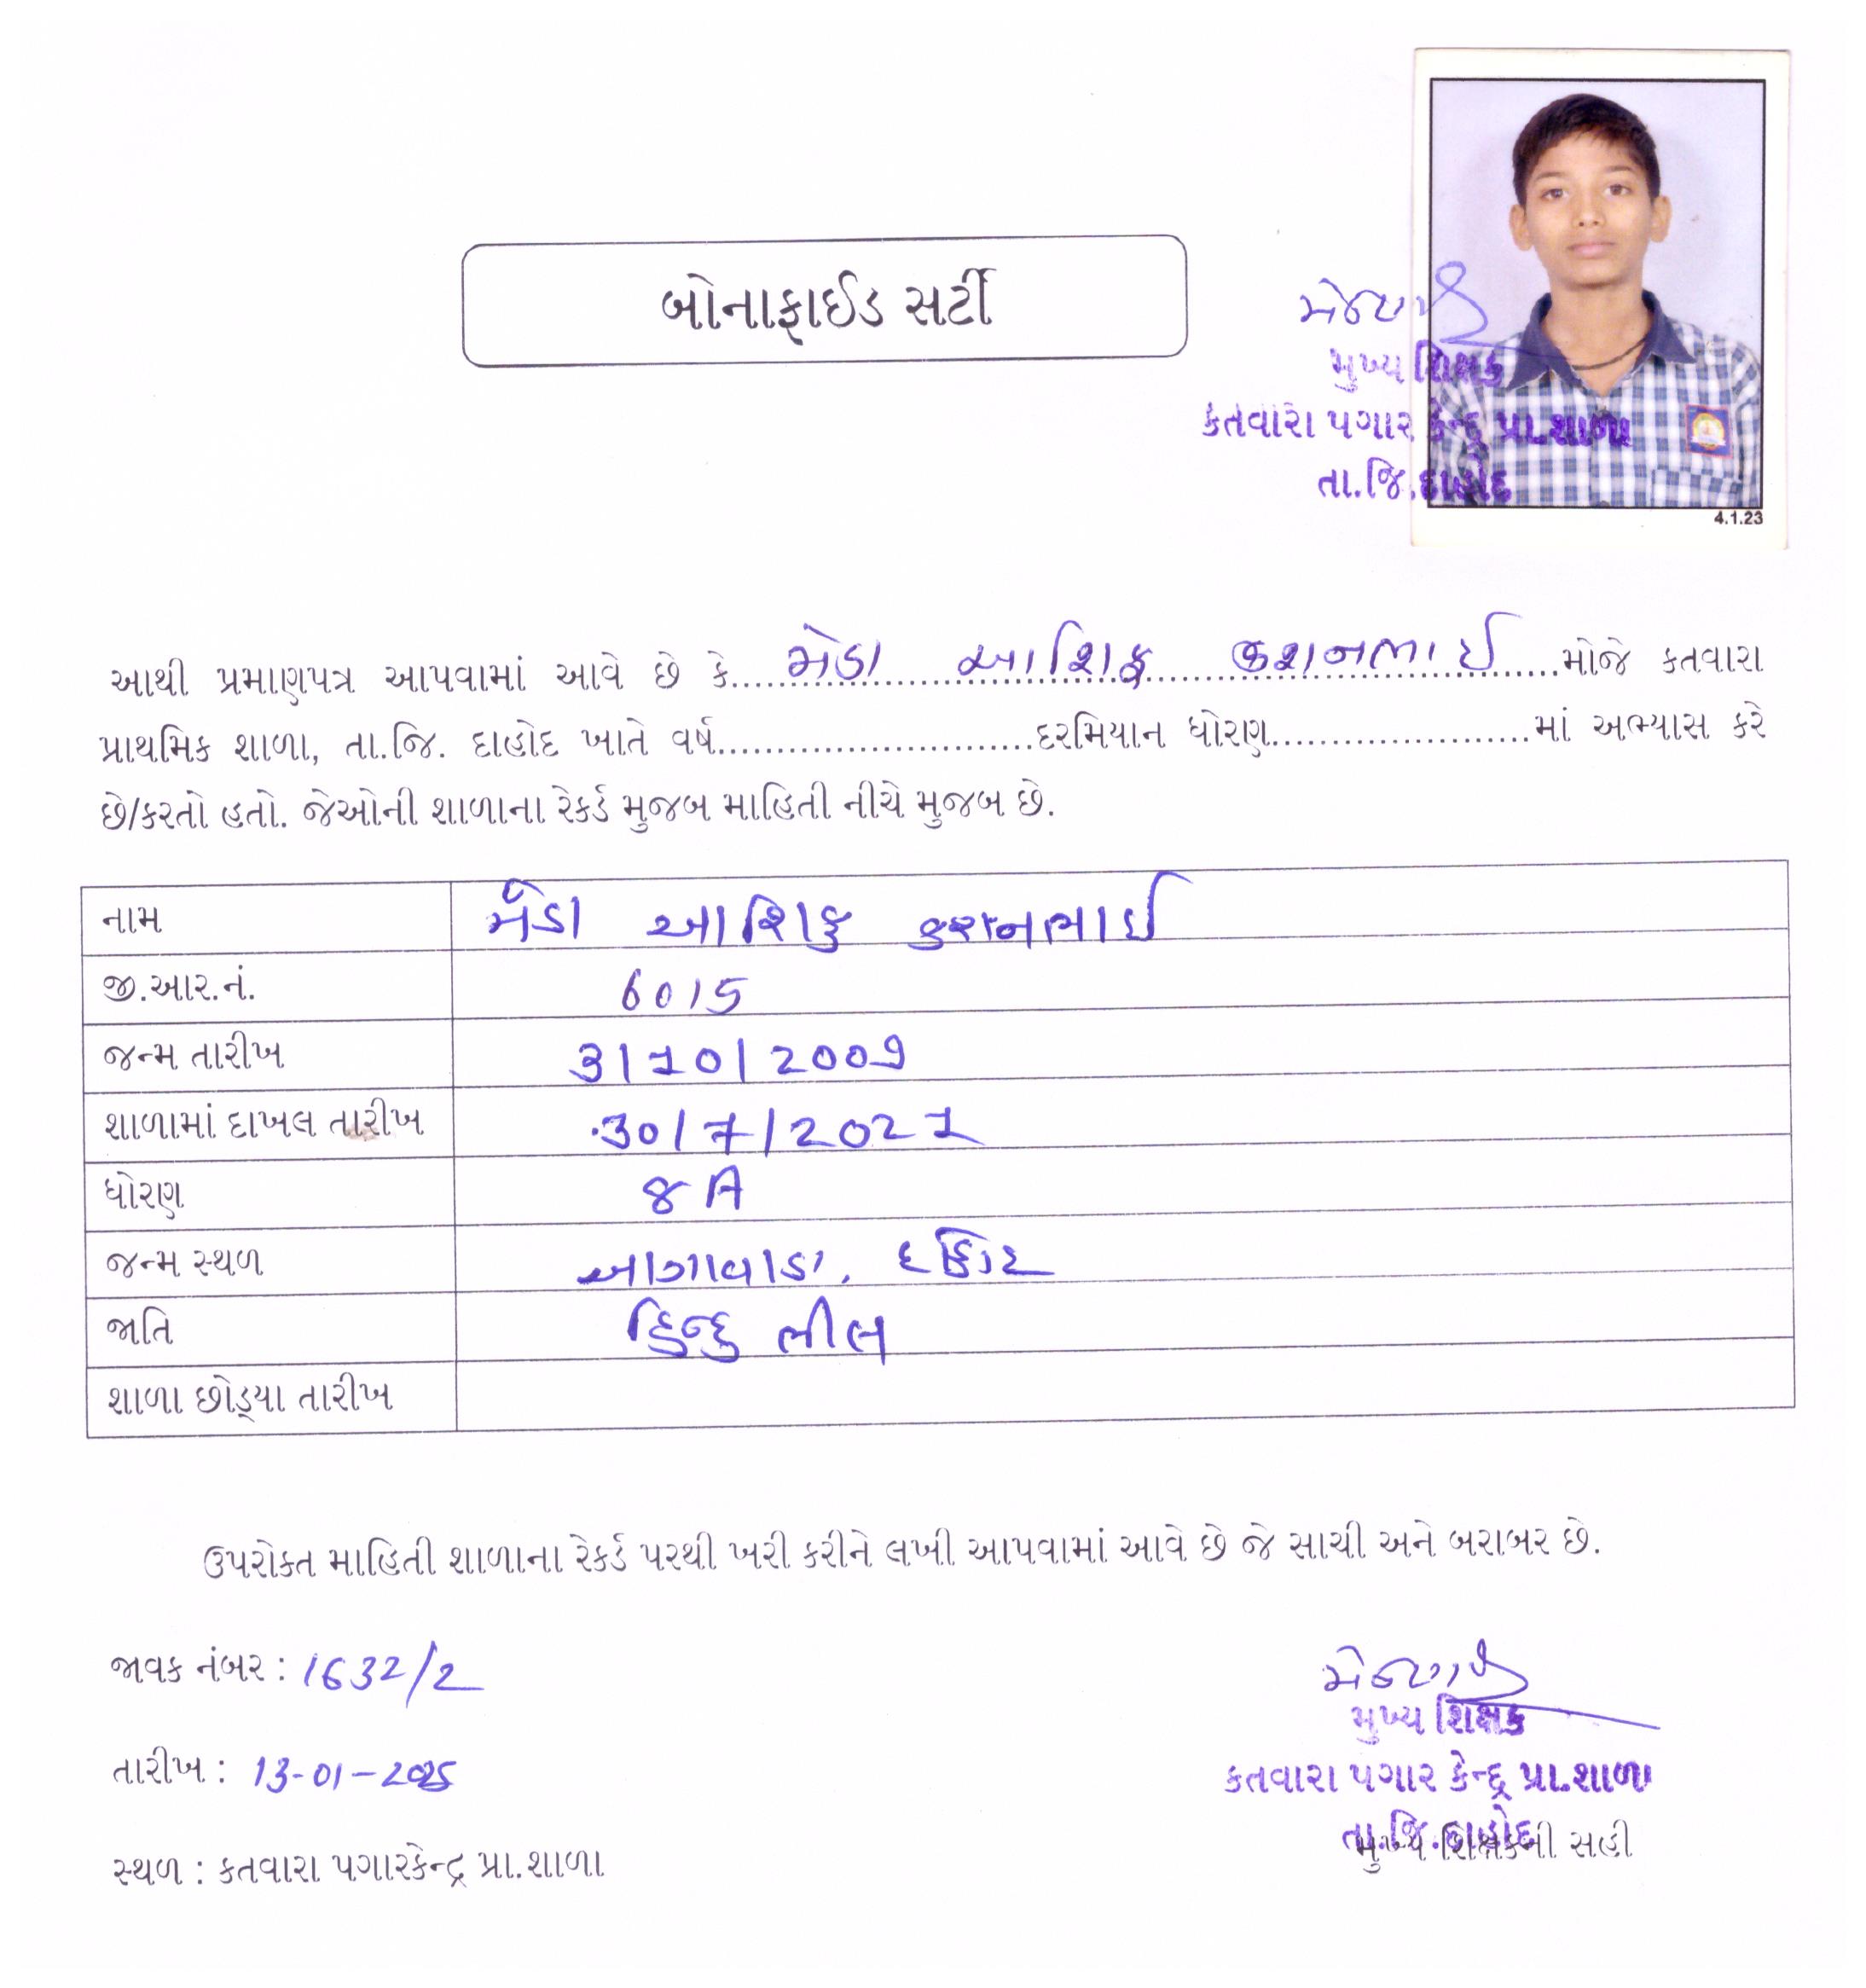 બોનાફાઈડ સર્ટી
મુખ્ય શિક્ષક
કતવારા પગાર કેન્દ્ર પ્રા.શાળા
તા.જિ.દાહોદ
4.1.23
આથી પ્રમાણપત્ર આપવામાં આવે છે કે....મેડા આશિફ કશનભાઈ....મોજે કતવારા
પ્રાથમિક શાળા, તા.જિ. દાહોદ ખાતે વર્ષ............................દરમિયાન ધોરણ.......................માં અભ્યાસ કરે
છે/કરતો હતો. જેઓની શાળાના રેકર્ડ મુજબ માહિતી નીચે મુજબ છે.
નામ મેડા આશિફ કશનભાઈ
જી.આર.નં. 6015
જન્મ તારીખ 3/10/2009
શાળામાં દાખલ તારીખ 30/7/2021
ધોરણ 8 A
જન્મ સ્થળ આગાવાડા,
જાતિ હિન્દુ ભીલ
શાળા છોડ્યા તારીખ
ઉપરોક્ત માહિતી શાળાના રેકર્ડ પરથી ખરી કરીને લખી આપવામાં આવે છે જે સાચી અને બરાબર છે.
જાવક નંબર : 1632/2
તારીખ : 13-01-2025
સ્થળ : કતવારા પગારકેન્દ્ર પ્રા.શાળા
મુખ્ય શિક્ષક
કતવારા પગાર કેન્દ્ર પ્રા.શાળા
તા.જિ.દાહોદ
મુખ્ય શિક્ષકની સહી